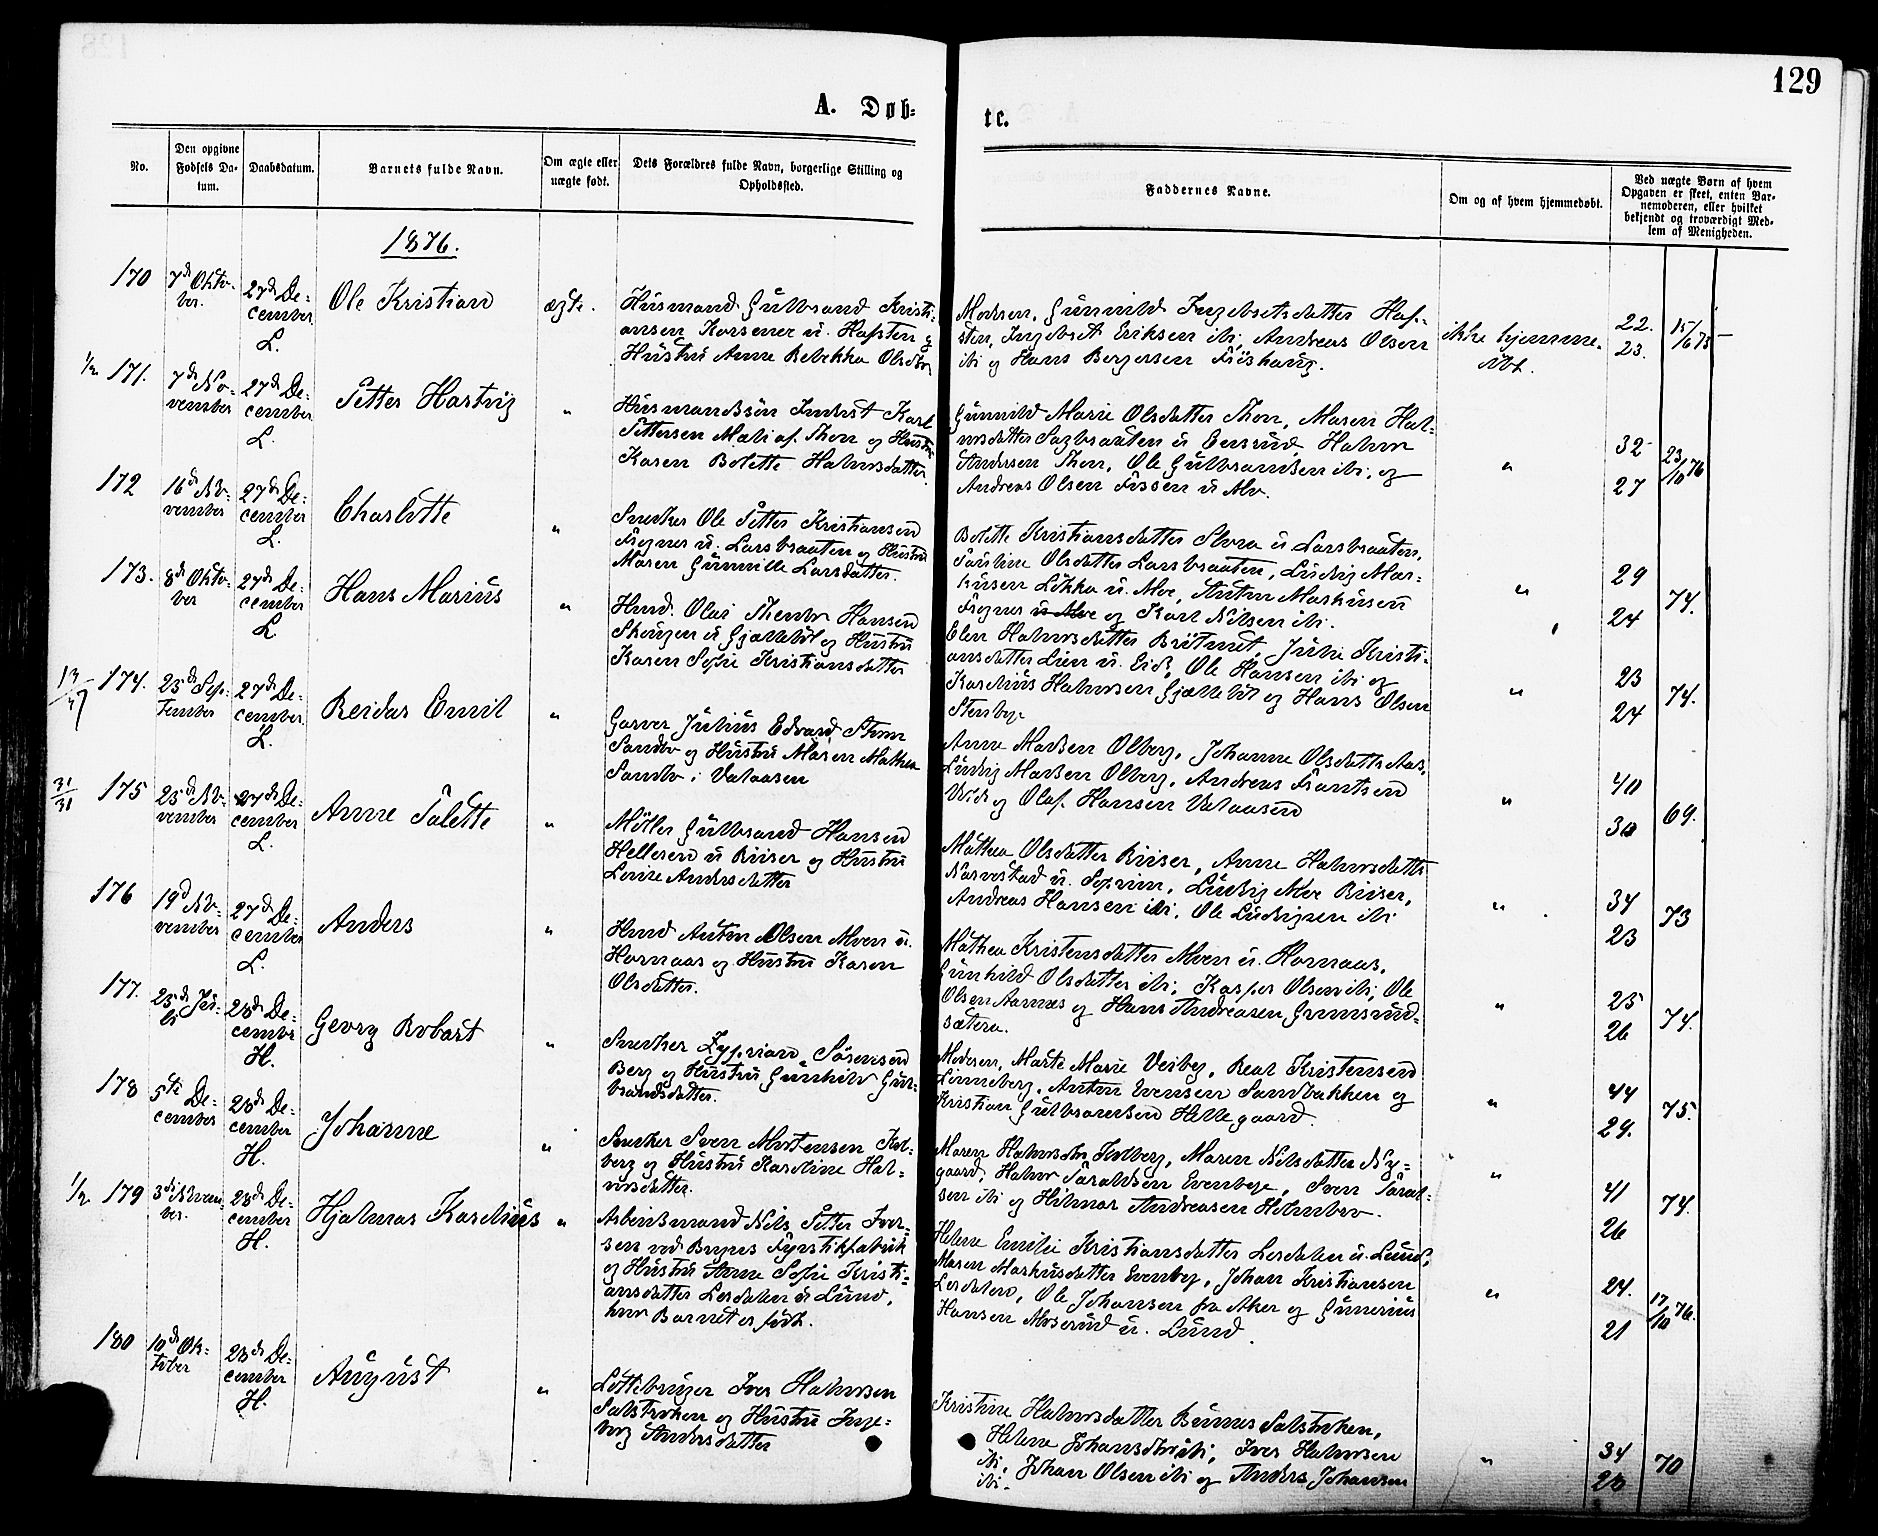 129
A. Døb-
te.
No.
Den opgivne Fødsels Da-
tum.
Daabsdatum.
Barnets fulde Navn.
Om ægte eller
uægte født.
Dets Forældres fulde Navn, borgerlige Stilling og
Opholdssted.
Faddernes Navne.
Om og af hvem hjemmedøbt.
Ved uægte Børn af hvem
Opgaven er skeet, enten Bar-
nemoderen, eller hvilket
bekjendt og troværdigt Med-
lem af Menigheden.
1876.
170
7de Okto-
ber.
27de De-
cember
L.
Ole Kristian
ægte.
Husmand Gulbrand Kristi-
ansen Korsener u. Hafsten og
Hustru Anne Rebekka Olsdtr
Moderen, Gunnild Ingebretsdatter Haf-
sten, Ingebret Eriksen ibi, Andreas Olsen
ibi og Hans Bergersen Frishaug.
ikke hjemme-
døbt.
22.
23.
15/6 73
1/2 171.
7de No-
vember
27de De-
cember
L.
Petter Hartvig
"
Husmandssøn Inderst Karl
Pettersen Mæli af Thon og Hustru
Karen Bolette Halvorsdatter
Gunnild Marie Olsdatter Thon, Maren Hal-
vorsdatter Sagbraaten u Eensrud, Halvor
Andersen Thon, Ole Gulbrandsen ibi, og
Andreas Olsen Fossen u Alv.
"
32
27
23/10 76
172
16de No-
vember
27de De-
cember
L.
Charlotte
"
Snedker Ole Petter Kristiansen
Frogner u. Larsbraaten og Hustru
Maren Gunnille Larsdatter.
Bolette Kristiansdatter u Larsbraaten,
Pauline Olsdatter Larsbraaten, Ludvig Mar-
kusen Løkka u. Alve, Anton Markusen
Frogner u Alve og Karl Nilsen ibi.
"
29
24
74.
173.
8de Okto-
ber
27de De-
cember
L
Hans Marius
"
Hmd. Olai Theodor Hansen
Skougen u Gjættebøl og Hustru
Karen Sofie Kristiansdatter
Elen Halvorsdatter Brøtmet, Julie Kristi-
ansdatter Lien u. Eid, Ole Hansen ibi og
Karelius Halvorsen Gjættebøl og Hans Olsen
Stenbye
"
23
24
74.
13/37 174.
25de Sep-
tember
27de De-
cember
L.
Reidar Emil
"
Garver Julius Edvard Thon
Sandbo og Hustru Maren Mathea
Sandbo i Valaasen
Anne Madsen Olberg, Johanne Olsdatter Aas,
Ludvig Madsen Olberg, Andreas Frantsen
Viik og Olaf Hansen Valaasen
"
40
30
69.
31/31 175
25de No-
vember
27de De-
cember
L.
Anne Palette
"
Møller Gulbrand Hansen
Hellesen u Riiser og Hustru
Lovise Andersdatter
Mathea Olsdatter Riiser, Anne Halvorsdatter
Narvestad u. Seprim, Ludvig Alve Riiser,
Andreas Hansen ibi, Ole Ludvigsen ibi
"
34
23
73
176
19de No-
vember
27de De-
cember
L.
Anders
"
Hmd Anton Olsen Moen u.
Hornaas og Hustru Karen
Olsdatter.
Mathea Kristensdatter Moen u. Hornaas,
Gunhild Olsdatter ibi, Kasper Olsen ibi, Ole
Olsen Aarnæs og Hans Andreasen Grimsrud-
sætera.
"
25
26
74.
177.
25de Ju-
li
28de De-
cember
H.
Georg Robart
"
Snedker Zyprian Sørensen
Berg og Hustru Gunhild Gul-
brandsdatter.
Moderen, Marte Marie Veiby, Beat Kristensen
Linneberg, Anton Evensen Sandbakken og
Kristian Gulbrandsen Hellegaard.
"
44
29.
75.
178
5te De-
cember
28de De-
cember
H.
Johanne
"
Snedker Sven Mortensen Kol-
berg og Hustru Karoline Hal-
vorsdatter.
Maren Halvorsdtr Kolberg, Maren Nilsdatter Ny-
gaard, Halvor Paraldsen Evenbye, Sven Paral-
sen ibi og Hilmar Andreasen Holmbro.
"
41
26
74.
1/2 179
3de Novem-
ber.
28de De-
cember
H.
Hjalmar Karelius
"
Arbeidsmand Nils Petter Iver-
sen ved Bryns Fyrstikfabrik
og Hustru Anne Sofie Kristi-
ansdatter Lerdalen u Lund,
hvor Barnet er født.
Helene Emilie Kristiansdatter Lerdalen u. Lund,
Maren Markusdatter Evenby, Johan Kristiansen
Lerdalen, Ole Johansen fra Aker og Gunerius
Hansen Moserud u. Lund.
"
24.
21
17/10 76.
180
10de Ok-
tober
28de De-
cember
H.
August
"
Lottebruger Iver Halvorsen
Dalstroken og Hustru Inge-
borg Andersdatter
Kristine Halvorsdatter Dalstroken,
Helene Johansdtr ibi, Iver Halvorsen
ibi, Johan Olsen ibi og Anders Johansen
ibi.
"
34
28
70